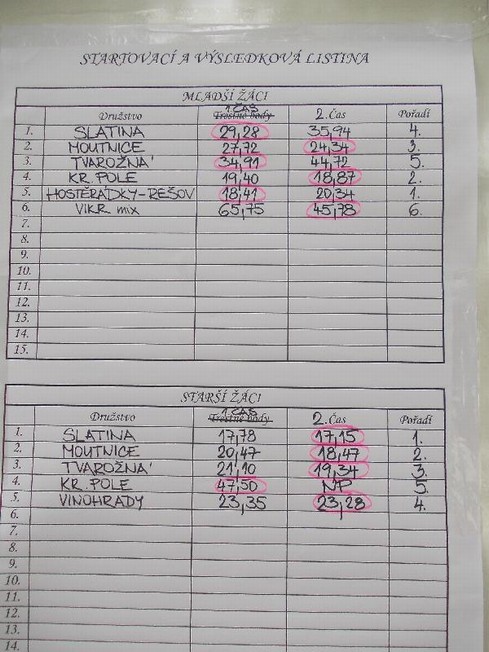 STARTOVACÍ A VÝSLEDKOVÁ LISTINA
MLADŠÍ ŽÁCI
Družstvo 1.ČAS Trestné body 2.Čas Pořadí
1. SLATINA 29,28 35,94 4.
2. MOUTNICE 27,72 24,34 3.
3. TVAROŽNÁ 34,91 44,72 5.
4. KR. POLE 19,40 18,87 2.
5. HOSTĚRÁDKY-REŠOV 18,41 20,34 1.
6. VIKR mix 65,75 45,78 6.
7.
8.
9.
10.
11.
12.
13.
14.
15.
STARŠÍ ŽÁCI
Družstvo 1.ČAS Trestné body 2.Čas Pořadí
1. SLATINA 17,78 17,15 1.
2. MOUTNICE 20,47 18,47 2.
3. TVAROŽNÁ 21,10 19,34 3.
4. KR. POLE 47,50 NP 5.
5. VINOHRADY 23,35 23,28 4.
6.
7.
8.
9.
10.
11.
12.
13.
14.